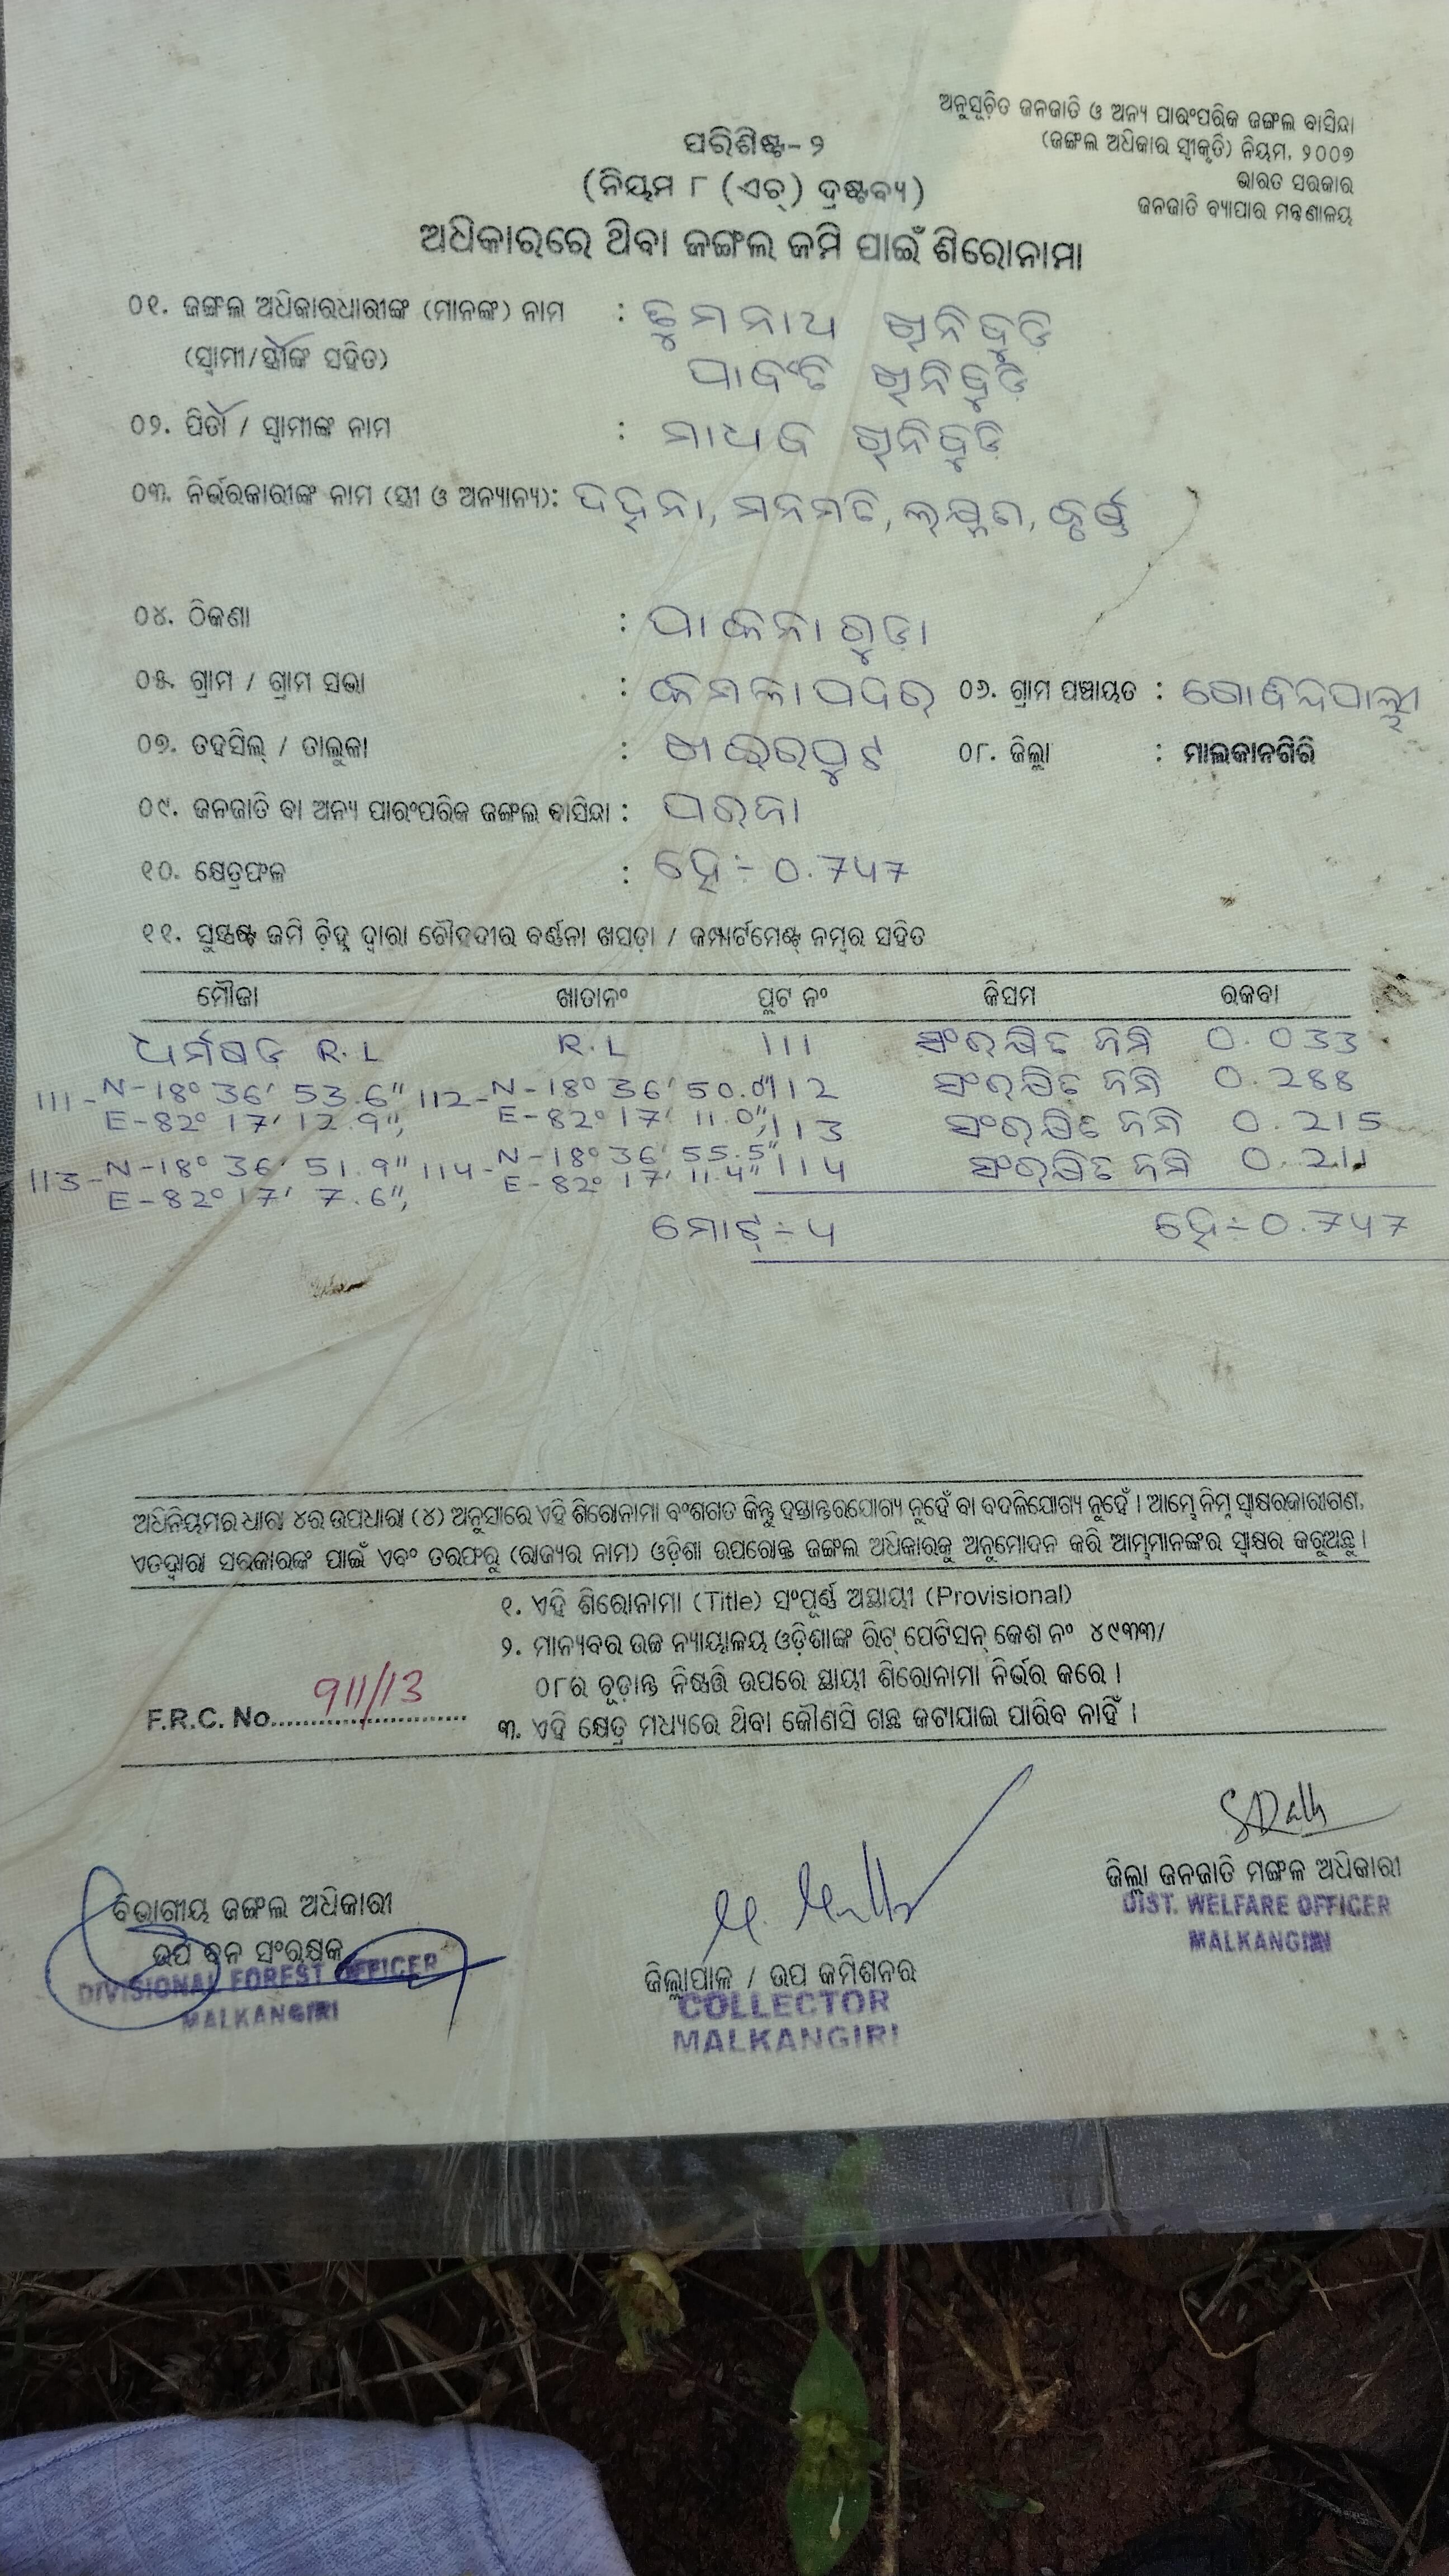 ଅନୁସୂଚିତ ଜନଜାତି ଓ ଅନ୍ୟ ପାରଂପରିକ ଜଙ୍ଗଲ ବାସିନ୍ଦା
(ଜଙ୍ଗଲ ଅଧିକାର ସ୍ୱୀକୃତି) ନିୟମ, ୨୦୦୭
ଭାରତ ସରକାର
ଜନଜାତି ବ୍ୟାପାର ମନ୍ତ୍ରଣାଳୟ
ପରିଶିଷ୍ଟ-୨
(ନିୟମ ୮ (ଏଚ୍) ଦ୍ରଷ୍ଟବ୍ୟ)
ଅଧିକାରରେ ଥିବା ଜଙ୍ଗଲ ଜମି ପାଇଁ ଶିରୋନାମା
୦୧. ଜଙ୍ଗଲ ଅଧିକାରଧାରୀଙ୍କ (ମାନଙ୍କ) ନାମ : ଡୁମନାଥ ଖିନିବୁଡି
(ସ୍ୱାମୀ/ସ୍ତ୍ରୀଙ୍କ ସହିତ) ପାର୍ବତି ଖିନିବୁଡି
୦୨. ପିତା / ସ୍ୱାମୀଙ୍କ ନାମ : ମାଧବ ଖିନିବୁଡି
୦୩. ନିର୍ଭରକାରୀଙ୍କ ନାମ (ସ୍ତ୍ରୀ ଓ ଅନ୍ୟାନ୍ୟ): ଦହନା, ମନମତି, ଲକ୍ଷ୍ମଣ,
୦୪. ଠିକଣା : ପାକନାଗୁଡ଼ା
୦୫. ଗ୍ରାମ / ଗ୍ରାମ ସଭା : କମଳାପଦର ୦୬. ଗ୍ରାମ ପଞ୍ଚାୟତ : ଗୋବିନ୍ଦପାଲ୍ଲୀ
୦୭. ତହସିଲ୍ / ତାଲୁକା : ଖଇରପୁଟ ୦୮. ଜିଲ୍ଲା : ମାଲକାନଗିରି
୦୯. ଜନଜାତି ବା ଅନ୍ୟ ପାରଂପରିକ ଜଙ୍ଗଲ ବାସିନ୍ଦା : ପରଜା
୧୦. କ୍ଷେତ୍ରଫଳ : ହେ÷ 0.747
୧୧. ସୁସ୍ପଷ୍ଟ ଜମି ଚିହ୍ନ ଦ୍ୱାରା ଚୌହଦୀର ବର୍ଣ୍ଣନା ଖସଡ଼ା / କମ୍ପାର୍ଟମେଣ୍ଟ୍ ନମ୍ବର ସହିତ
ମୌଜା ଖାତାନଂ ପ୍ଲଟ ନଂ କିସମ ରକବା
R.L R.L 111 ସଂରକ୍ଷିତ ଜମି 0.033
111- N-18° 36' 53.6" 112- N-18° 36' 50.0" 112 ସଂରକ୍ଷିତ ଜମି 0.288
E-82° 17' 12.9", E-82° 17' 11.0", 113 ସଂରକ୍ଷିତ ଜମି 0.215
113- N-18° 36' 51.9" 114- N-18° 36' 55.5" 114 ସଂରକ୍ଷିତ ଜମି 0.211
E-82° 17' 7.6", E-82° 17' 11.4"
ମୋଟ୍ ÷ 4 ହେ÷0.747
ଅଧିନିୟମର ଧାରା ୪ର ଉପଧାରା (୪) ଅନୁସାରେ ଏହି ଶିରୋନାମା ବଂଶଗତ କିନ୍ତୁ ହସ୍ତାନ୍ତରଯୋଗ୍ୟ ନୁହେଁ ବା ବଦଳିଯୋଗ୍ୟ ନୁହେଁ । ଆମ୍ଭେ ନିମ୍ନ ସ୍ୱାକ୍ଷରକାରୀଗଣ,
ଏତଦ୍ୱାରା ସରକାରଙ୍କ ପାଇଁ ଏବଂ ତରଫରୁ (ରାଜ୍ୟର ନାମ) ଓଡ଼ିଶା ଉପରୋକ୍ତ ଜଙ୍ଗଲ ଅଧିକାରକୁ ଅନୁମୋଦନ କରି ଆମ୍ଭମାନଙ୍କର ସ୍ୱାକ୍ଷର କରୁଅଛୁ ।
୧. ଏହି ଶିରୋନାମା (Title) ସଂପୂର୍ଣ୍ଣ ଅସ୍ଥାୟୀ (Provisional)
୨. ମାନ୍ୟବର ଉଚ୍ଚ ନ୍ୟାୟାଳୟ ଓଡ଼ିଶାଙ୍କ ରିଟ୍ ପେଟିସନ୍ କେଶ ନଂ ୪୯୩୩/
୦୮ର ଚୂଡ଼ାନ୍ତ ନିଷ୍ପତ୍ତି ଉପରେ ସ୍ଥାୟୀ ଶିରୋନାମା ନିର୍ଭର କରେ ।
F.R.C. No.......911/13.......
୩. ଏହି କ୍ଷେତ୍ର ମଧ୍ୟରେ ଥିବା କୌଣସି ଗଛ କଟାଯାଇ ପାରିବ ନାହିଁ ।
ଜିଲ୍ଲା ଜନଜାତି ମଙ୍ଗଳ ଅଧିକାରୀ
DIST. WELFARE OFFICER
MALKANGIRI
ବିଭାଗୀୟ ଜଙ୍ଗଲ ଅଧିକାରୀ
ଉପ ବନ ସଂରକ୍ଷକ
DIVISIONAL FOREST OFFICER
MALKANGIRI
ଜିଲ୍ଲାପାଳ / ଉପ କମିଶନର
COLLECTOR
MALKANGIRI